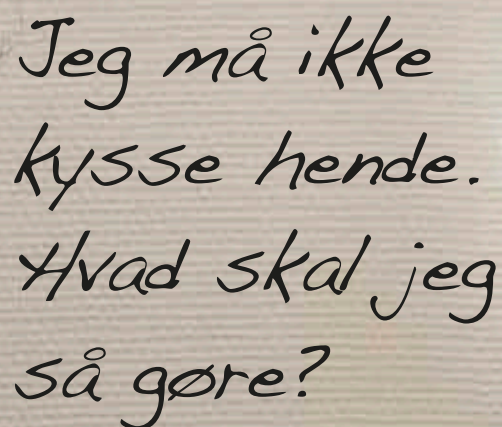 Jeg må ikke
kysse hende.
Hvad skal jeg
så gøre?